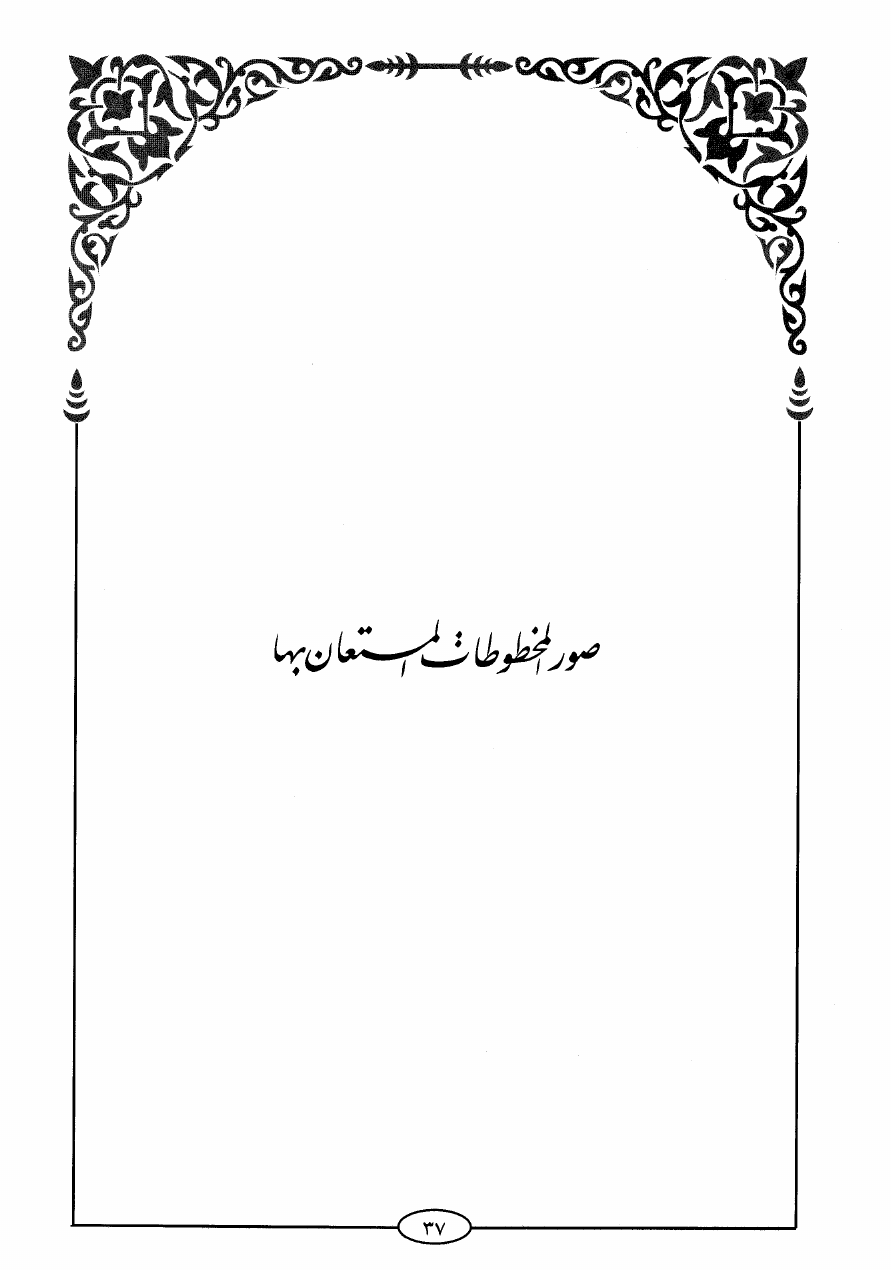 صور المخطوطات المستعان بها
٣٧